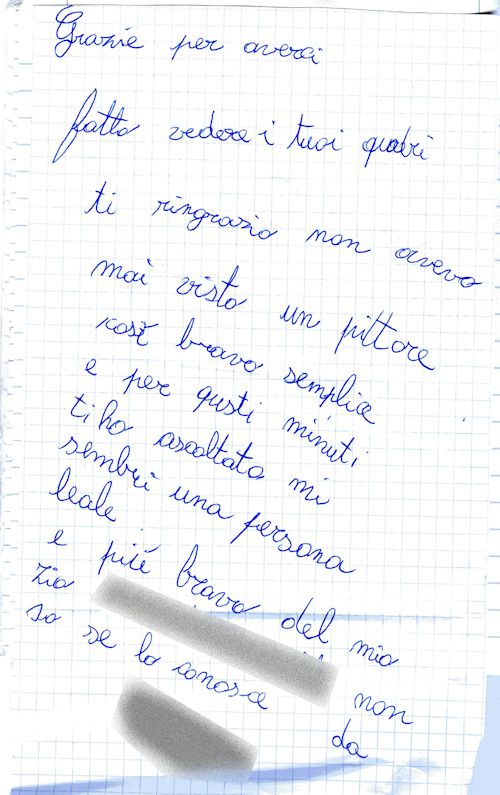 Grazie per averci
fatto vedere i tuoi quadri
ti ringrazio non avevo
mai visto un pittore
così bravo semplice
e per qusti minuti
ti ho ascoltato mi
sembri una persona
leale
e più bravo del mio
zio non
so se lo conosce
da